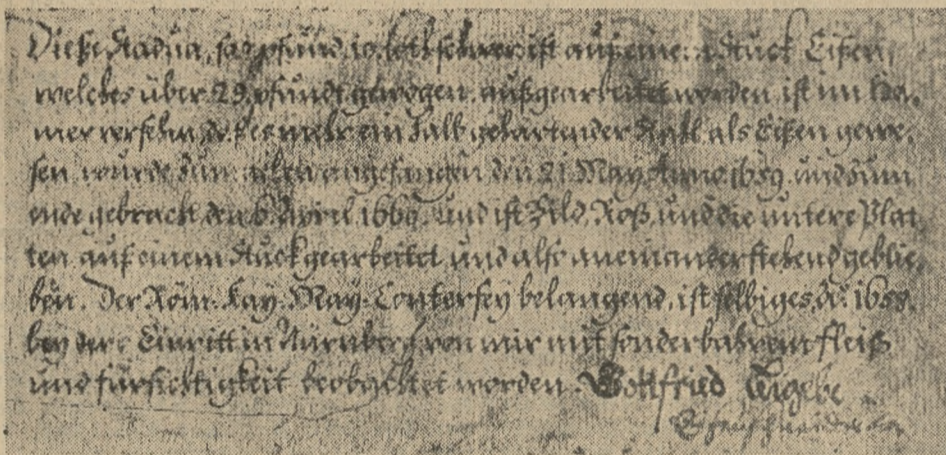 Dieße Stadua, so pfund 10 loth schwer ist auß eine: 1 Stuck Eißen,
welches über 29 pfundt gewogen, außgearbeitet worden ist im
mer als Eißen gewe,
sen angefangen den 21 May Anno 1659 und zum
ende gebracht den 6 April 1660, und ist Bild, Roß, und die untere Plat
ten auß einem Stuck gearbeitet und also aneinander stehend geblie,
ben. Der Röm. Kay. May. Conterfey belangend, ist selbiges, A: 1658.
bey der Einritt in Nürnberg von mir mit sonderbahrem fleiß
und fürsichtigkeit beobachtet worden. Gottfried Leigebe
Eißenschneider